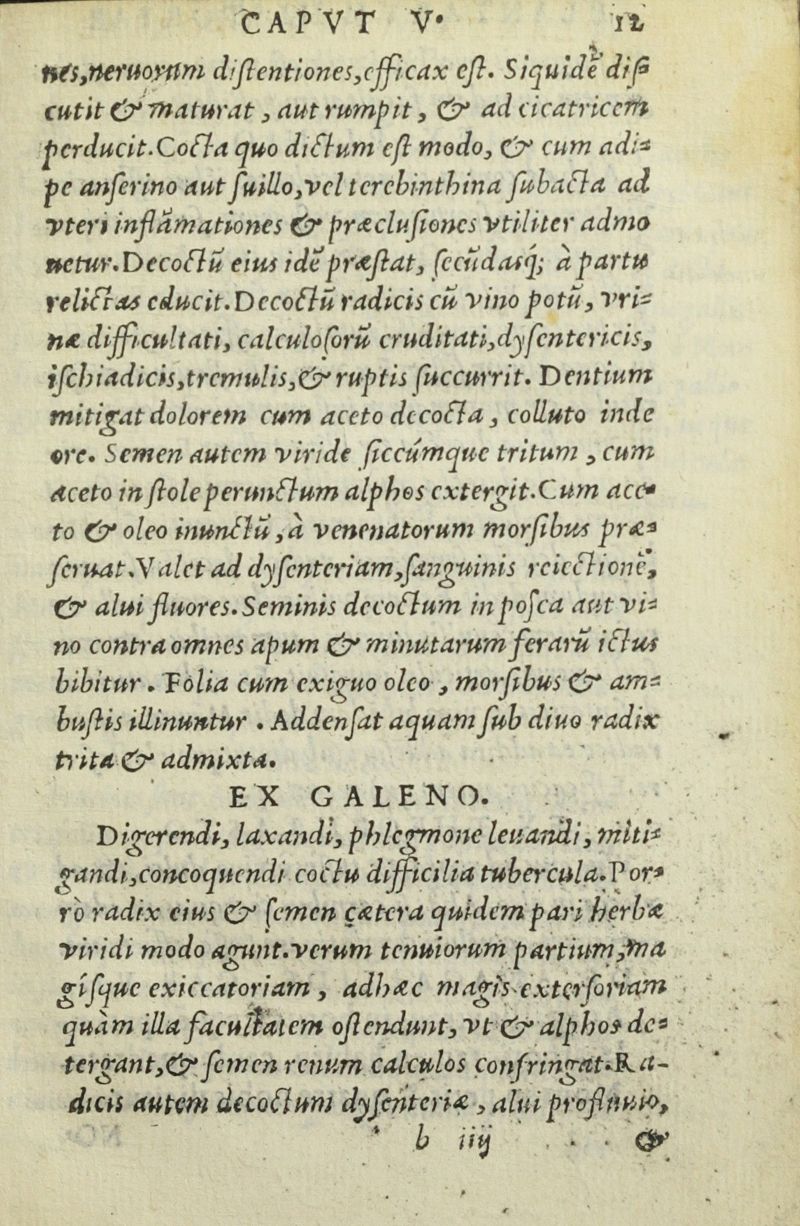 CAPVT V. 12
nes, neruorum distentiones, efficax est. Siquidē dis-
cutit & maturat, aut rumpit, & ad cicatricem
perducit. Cocta quo dictum est modo, & cum adi-
pe anserino aut suillo, vel terebinthina subacta ad
vteri inflāmationes & præclusiones vtiliter admo
netur. Decoctū eius idē præstat, secūdasq́; à partu
relictas educit. Decoctū radicis cū vino potū, vri-
næ difficultati, calculosorū cruditati, dysentericis,
ischiadicis, tremulis, & ruptis succurrit. Dentium
mitigat dolorem cum aceto decocta, colluto inde
ore. Semen autem viride siccúmque tritum, cum
aceto in sole perunctum alphos extergit. Cum ace-
to & oleo inunctū, à venenatorum morsibus præ-
seruat. Valet ad dysenteriam, sanguinis reiectionē,
& alui fluores. Seminis decoctum in posca aut vi-
no contra omnes apum & minutarum ferarū ictus
bibitur. Folia cum exiguo oleo, morsibus & am-
bustis illinuntur. Addensat aquam sub diuo radix
trita & admixta.
EX GALENO.
Digerendi, laxandi, phlegmone leuandi, miti-
gandi, concoquendi coctu difficilia tubercula. Por-
rò radix eius & semen cætera quidem pari herbæ
viridi modo agunt. verum tenuiorum partium, ma
gísque exiccatoriam, adhæc magis extersoriam
quàm illa facultatem ostendunt, vt & alphos de-
tergant, & semen renum calculos confringat. Ra-
dicis autem decoctum dysenteriæ, alui profluuio,
b iiij &